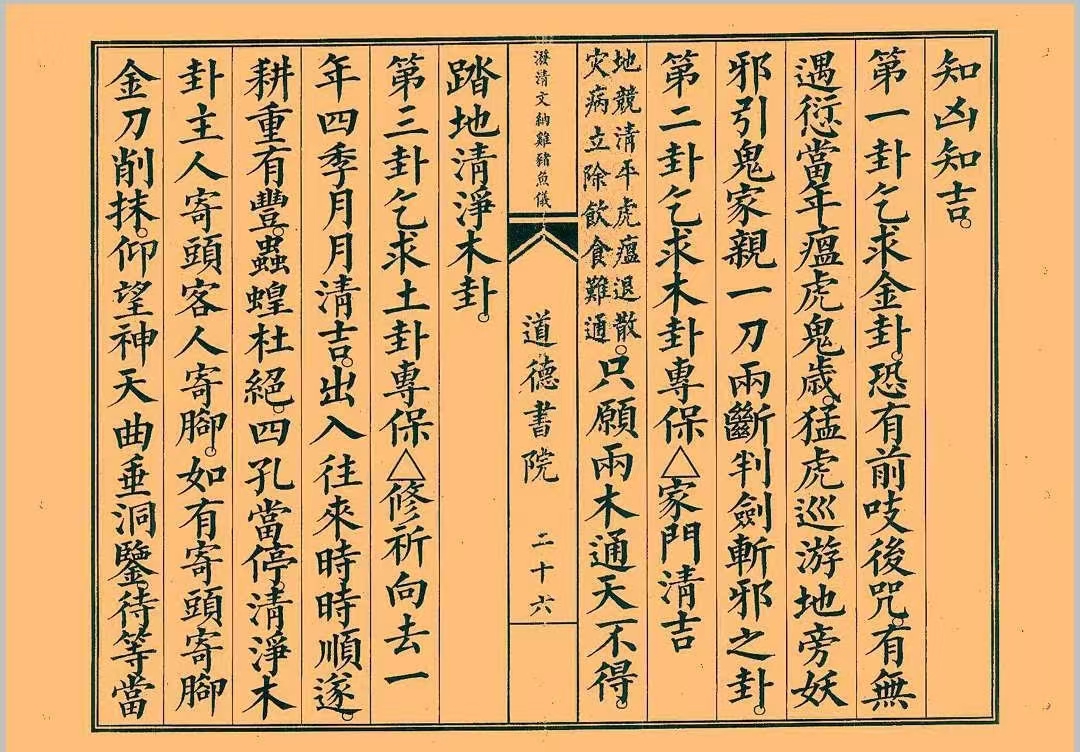 知凶知吉。
第一卦乞求金卦。恐有前吱後咒。有無
遇愆當年瘟虎鬼歲。猛虎巡游地旁妖
邪引鬼家親一刀兩斷判劍斬邪之卦。
第二卦乞求木卦專保△家門清吉
地競清平虎瘟退散。
灾病立除飲食難通
只願兩木通天一不得。
潑清文納雞豬魚儀
道德書院
二十六
踏地清淨木卦。
第三卦乞求土卦專保△修祈向去一
年四季月月清吉。出入往來時時順遂。
耕重有豐。蟲蝗杜絕。四孔當停。清淨木
卦主人寄頭客人寄腳。如有寄頭寄腳
金刀削抹。仰望神天曲垂洞鑒。待等當